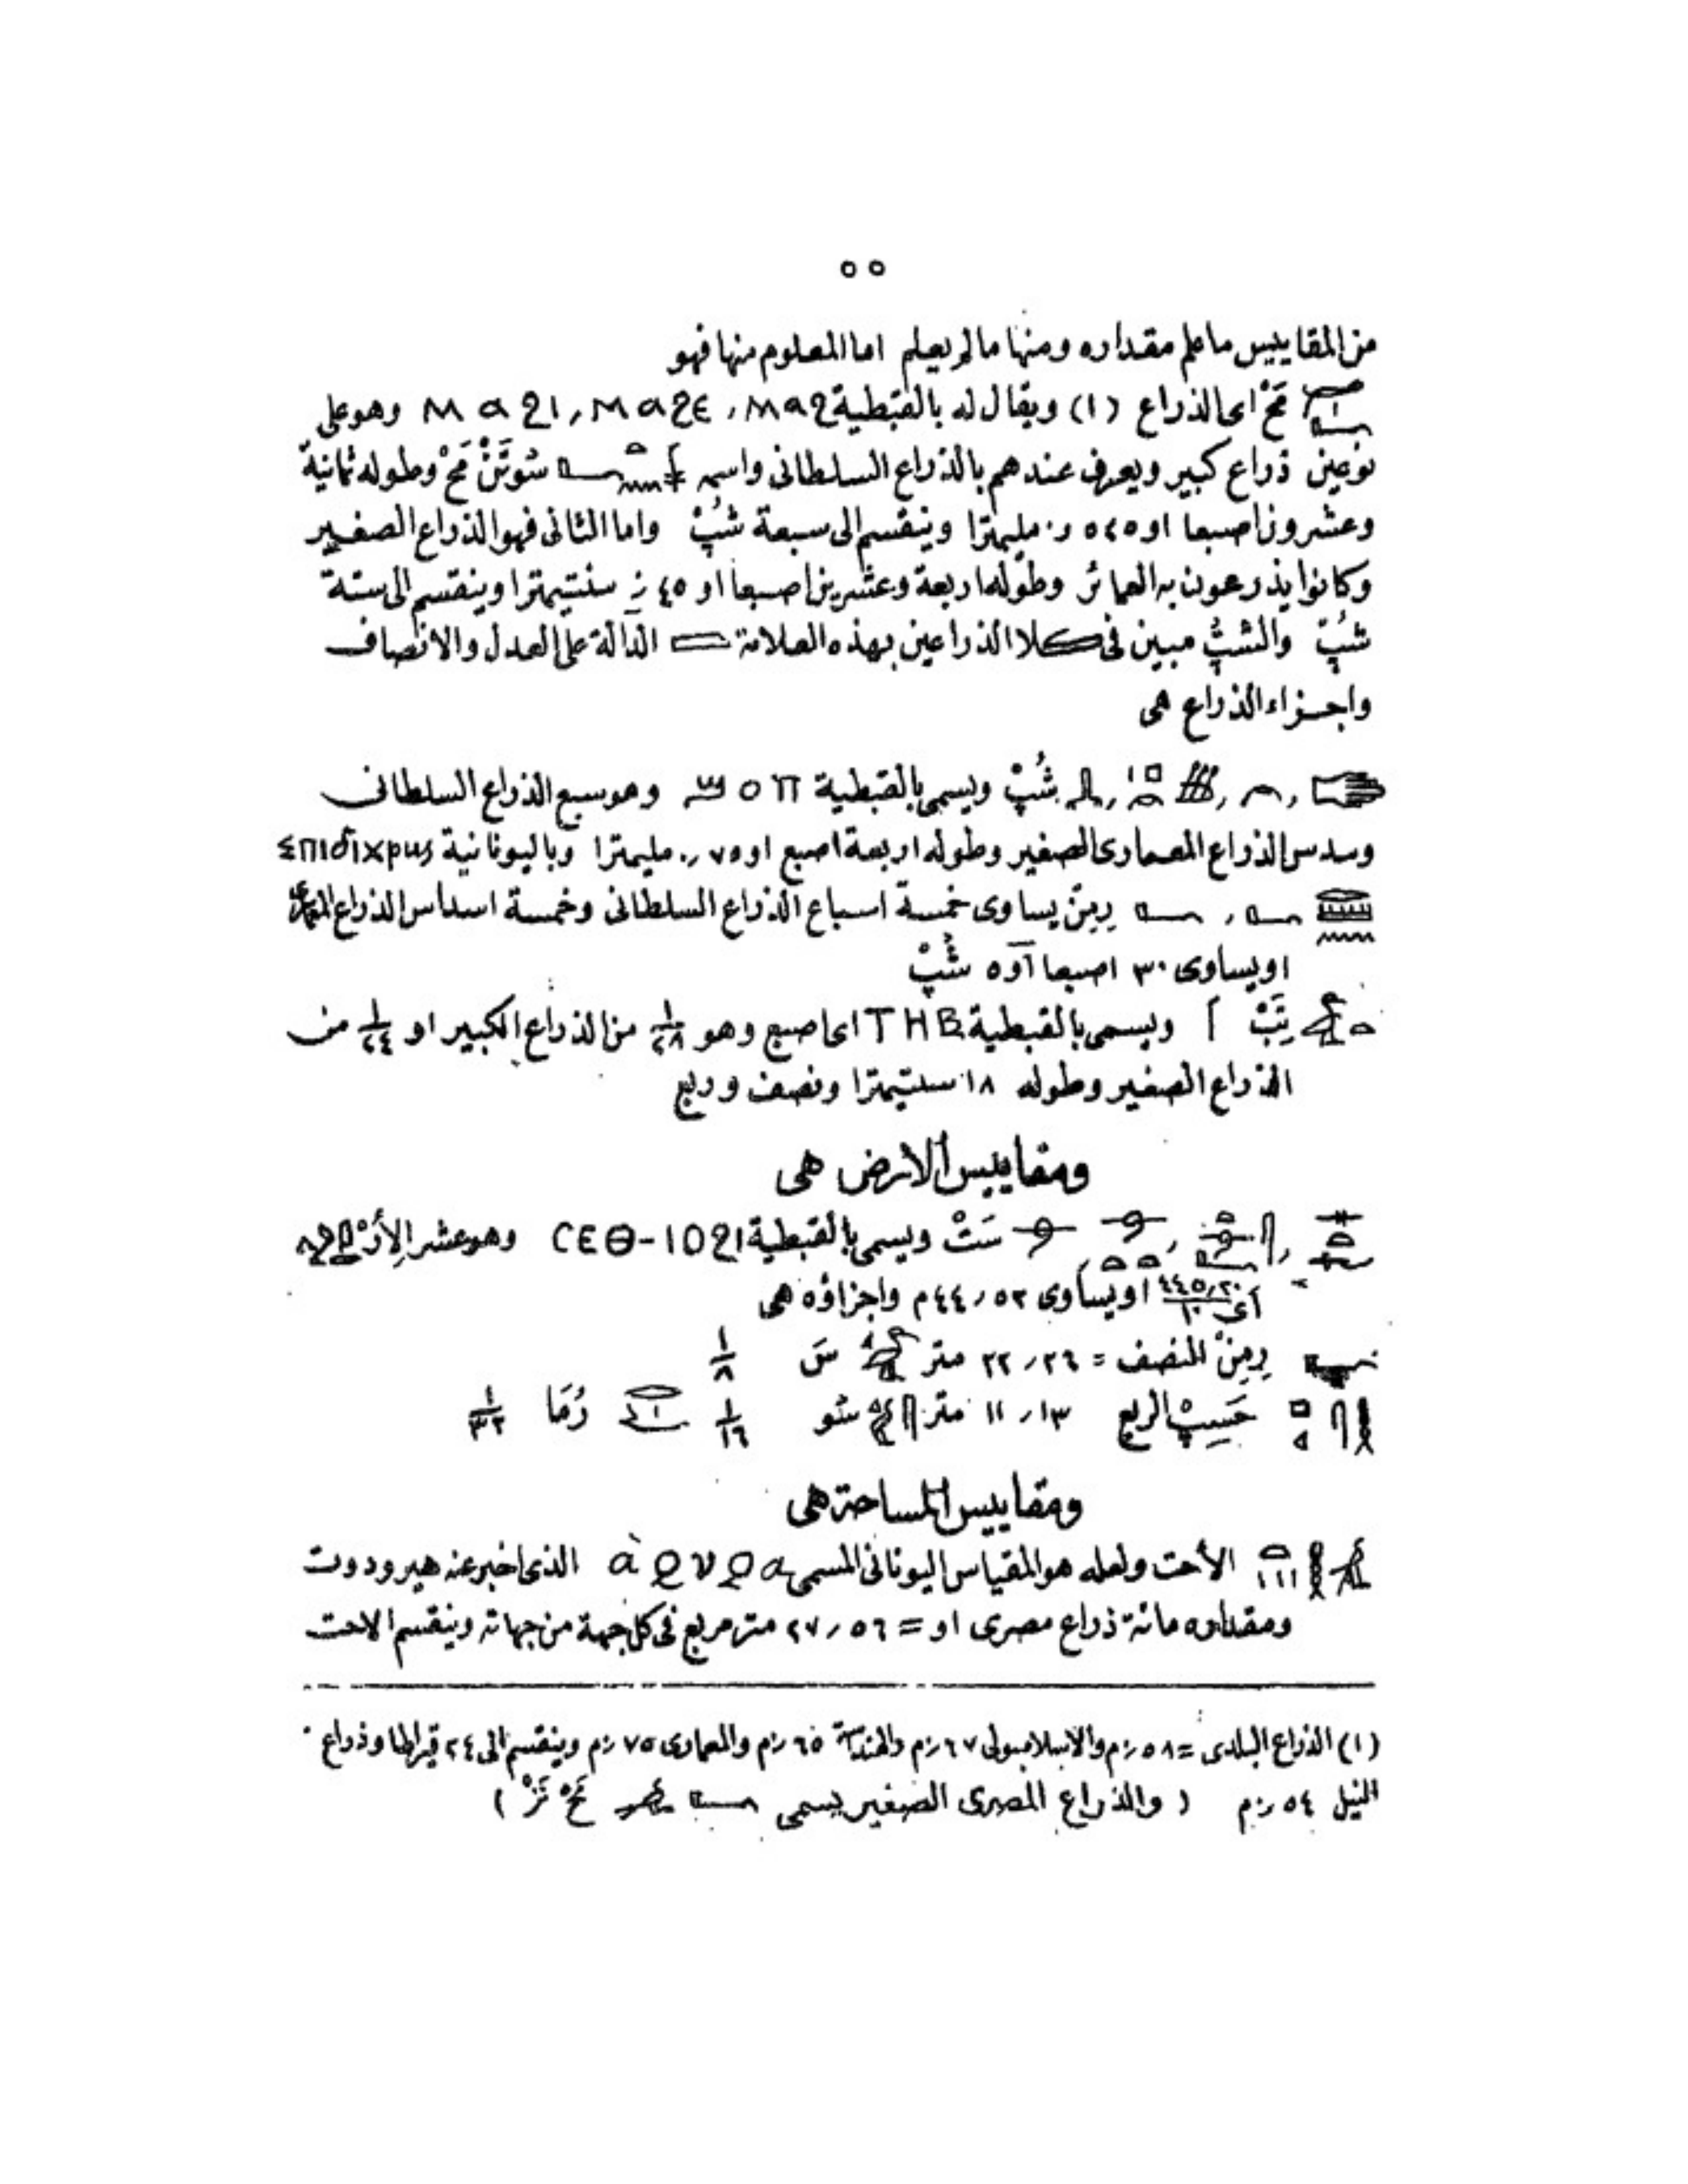 ٥٥
من المقاييس ما علم مقداره ومنها ما لم يعلم اما المعلوم منها فهو
مَحْ اى الذراع (١) ويقال له بالقبطية ⲙⲁϩⲓ ، ⲙⲁϩⲉ ، ⲙⲁϩ وهو على
نوعين ذراع كبير ويعرف عندهم بالذراع السلطانى واسمه سُوتَنْ مَحْ وطوله ثمانية
وعشرون اصبعا او ٥٢٥ ر٠ مليمترا وينقسم الى سبعة شُپْ واما الثانى فهو الذراع الصغير
وكانوا يذرعون به العمائر وطوله اربعة وعشرين اصبعا او ٤٥ ر٠ سنتيمترا وينقسم الى ستة
شُپْ والشپُ مبين فى كلا الذراعين بهذه العلامة الدالة على العدل والانصاف
واجزاء الذراع هى
شُپْ ويسمى بالقبطية ϣⲟⲡ وهو سبع الذراع السلطانى
وسدس الذراع المعمارى الصغير وطوله اربعة اصبع او ٧٥ ر٠ مليمترا وباليونانية
رِمِنْ يساوى خمسة اسباع الذراع السلطانى وخمسة اسداس الذراع
او يساوى ٢٠ اصبعا او ٥ شُپْ
تِبْ ويسمى بالقبطية ⲧⲏⲃ اى اصبع وهو ١/٢٨ من الذراع الكبير او ١/٢٤ من
الذراع الصغير وطوله ١٨ سنتيمترا ونصف وربع
ومقاييس الارض هى
سَتْ ويسمى بالقبطية ⲥⲉⲑ-ⲓⲟϩⲓ وهو عشر
اى ٤٤٥٫٢٠/١٠ او يساوى ٤٤٫٥٢ م واجزاؤه هى
رِمِنْ النصف = ٢٢٫٢٦ متر سَ ١/٨
حَسِپْ الربع ١١٫١٣ متر سُو ١/١٦ رُمَا ١/٣٢
ومقاييس المساحة هى
الأحت ولعله هو المقياس اليونانى المسمى الذى اخبر عنه هيرودوت
ومقداره مائة ذراع مصرى او = ٢٧٫٥٦ متر مربع فى كل جهة من جهاته وينقسم الاحت
(١) الذراع البلدى = ٥٨ ر٠م والاسلامبولى ٦٧ ر٠م والهندسة ٦٥ ر٠م والمعمارى ٧٥ ر٠م وينقسم الى ٢٤ قيراطا وذراع
النيل ٥٤ ر٠م (والذراع المصرى الصغير يسمى مَحْ نَزْ)